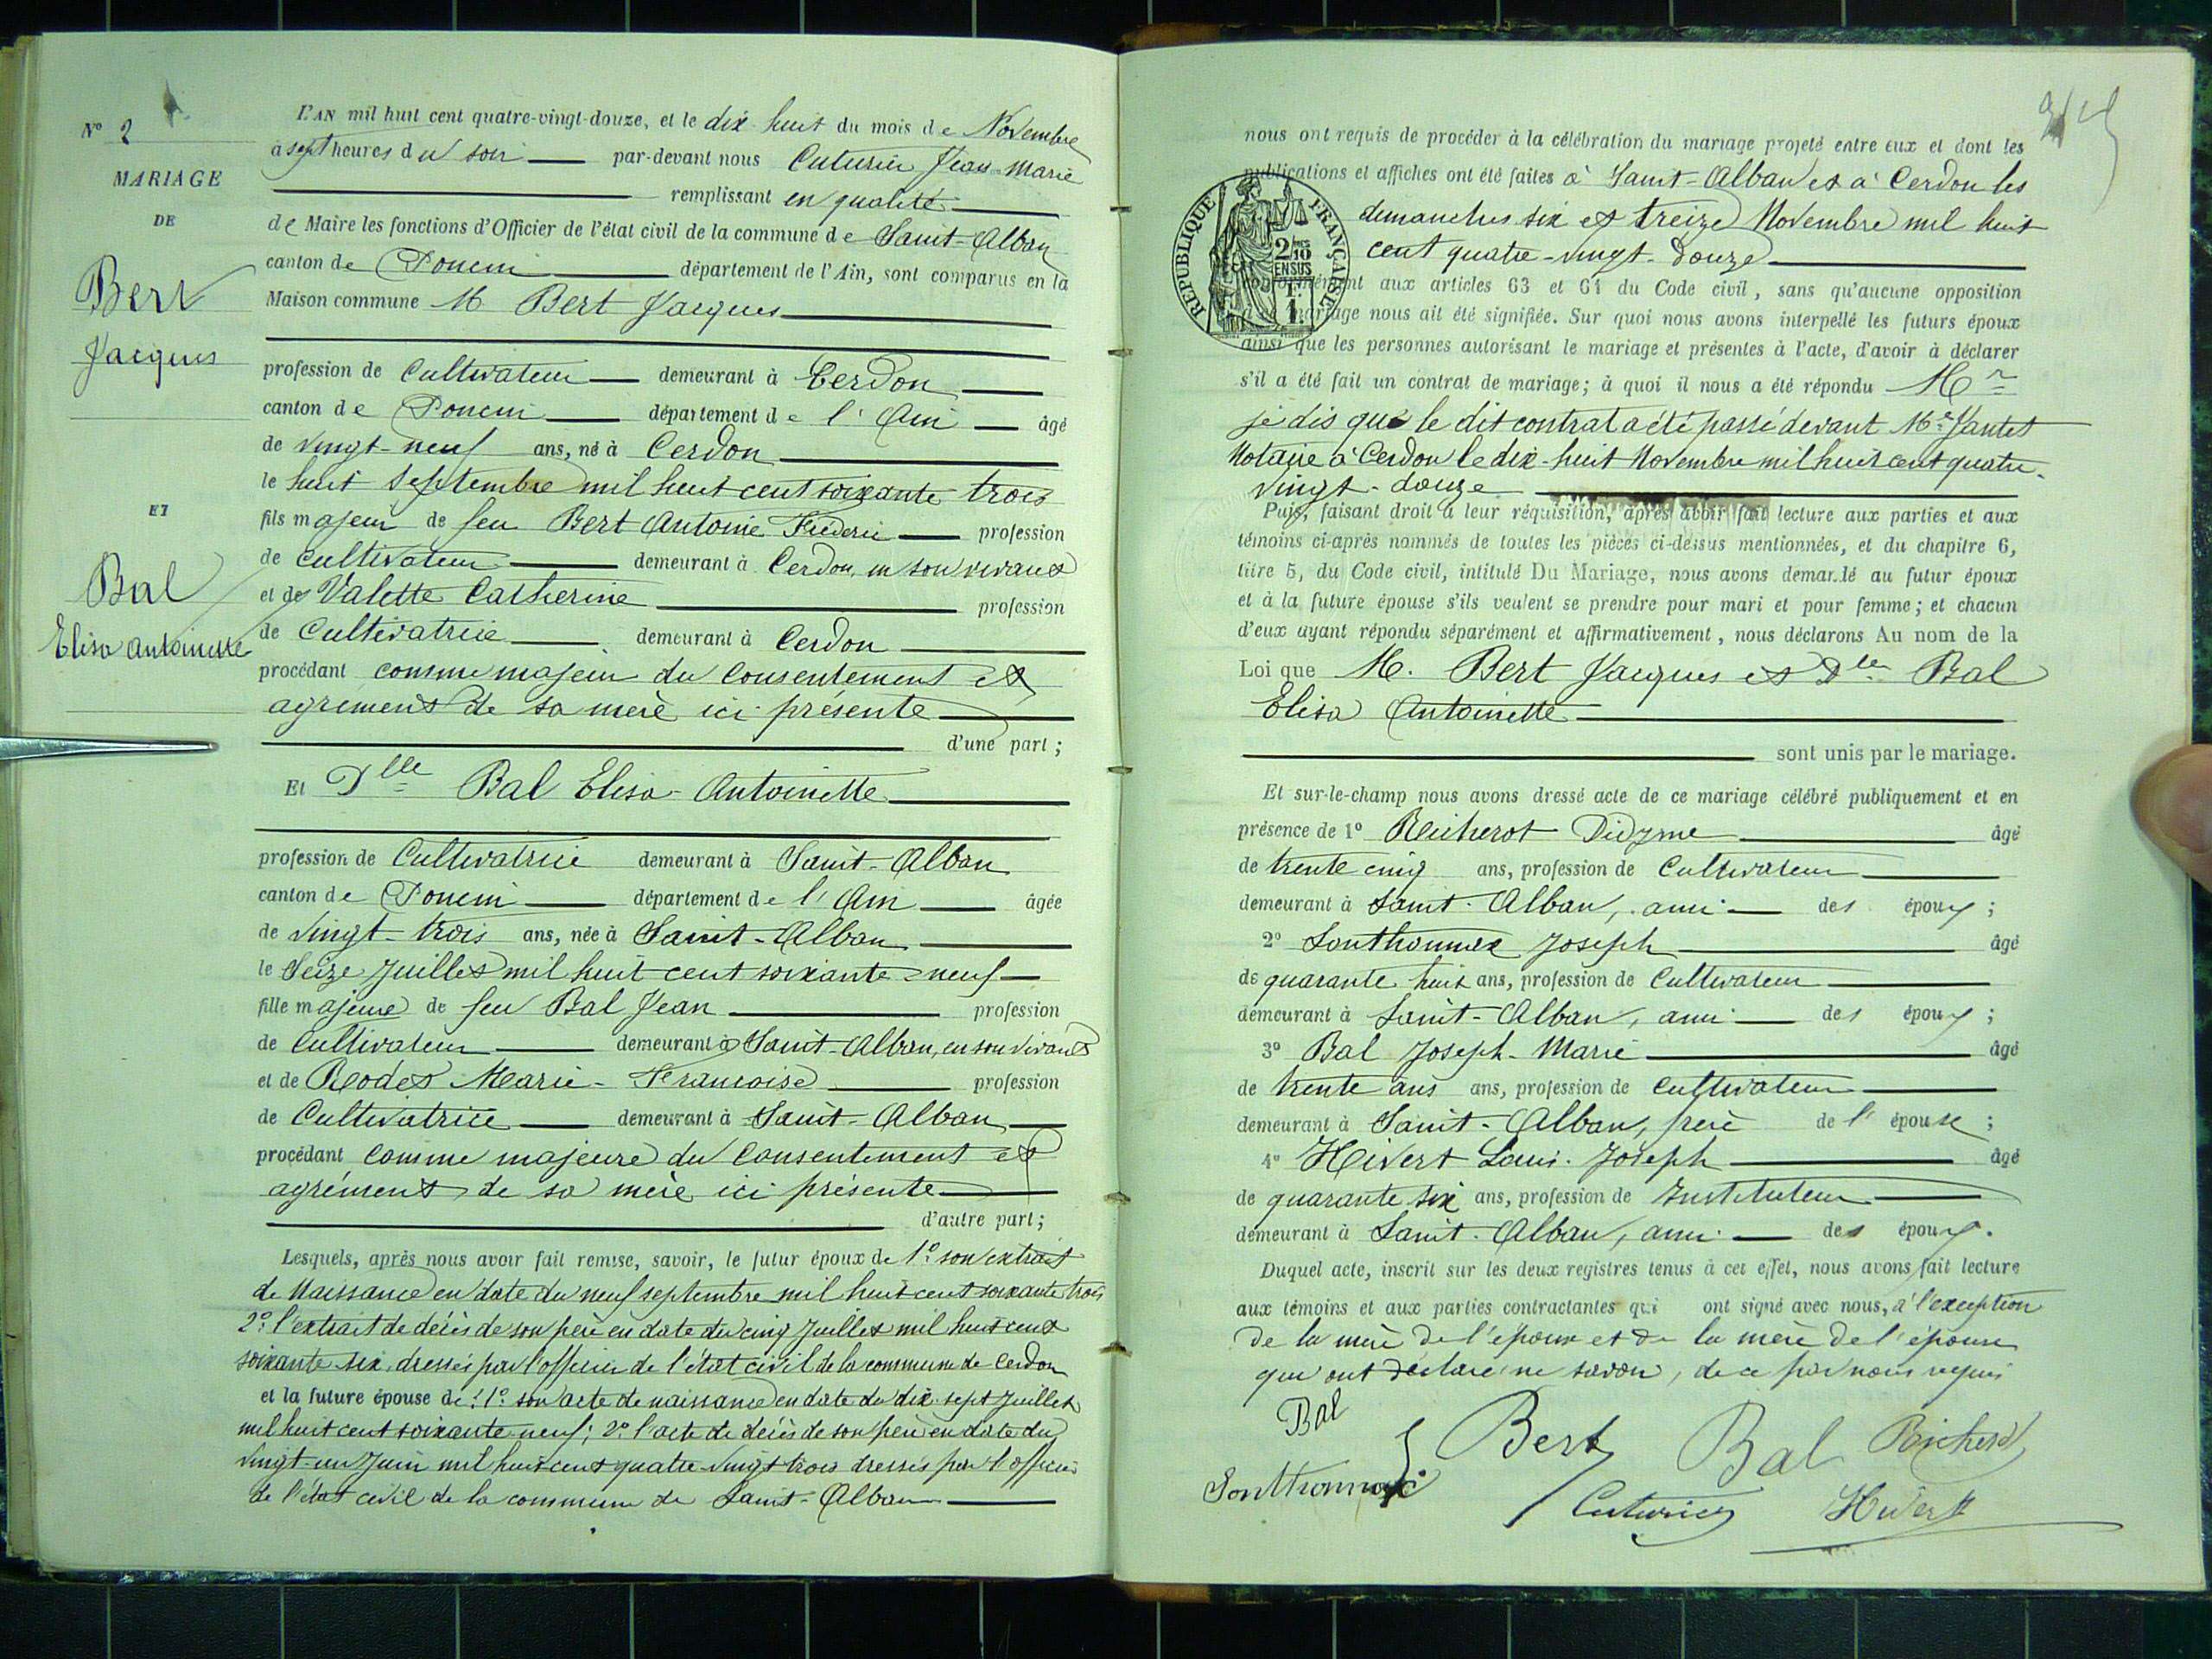 N° 2
MARIAGE
DE
Bert
Jacques
ET
Bal
Elisa Antoinette
L'AN mil huit cent quatre-vingt-douze, et le dix huit du mois de Novembre
à sept heures du soir par-devant nous Cuturier Jean-Marie
remplissant en qualité
de Maire les fonctions d'Officier de l'état civil de la commune de Saint-Alban
canton de Poncin département de l'Ain, sont comparus en la
Maison commune M Bert Jacques
profession de Cultivateur demeurant à Cerdon
canton de Poncin département de l'Ain âgé
de vingt-neuf ans, né à Cerdon
le huit Septembre mil huit cent soixante trois
fils majeur de feu Bert Antoine Frédéric profession
de cultivateur demeurant à Cerdon, en son vivant
et de Valette Catherine profession
de Cultivatrice demeurant à Cerdon
procédant comme majeur du consentement et
agrément de sa mère ici présente
d'une part ;
Et Dlle Bal Elisa-Antoinette
profession de Cultivatrice demeurant à Saint-Alban
canton de Poncin département de l'Ain âgée
de vingt-trois ans, née à Saint-Alban
le Seize Juillet mil huit cent soixante-neuf
fille majeure de feu Bal Jean profession
de Cultivateur demeurant à Saint-Alban, en son vivant
et de Rodet Marie-Francoise profession
de Cultivatrice demeurant à Saint-Alban
procédant comme majeure du consentement et
agrément de sa mère ici présente
d'autre part ;
Lesquels, après nous avoir fait remise, savoir, le futur époux de 1° son extrait
de Naissance en date du neuf septembre mil huit cent soixante trois
2° l'extrait de décès de son père en date du cinq Juillet mil huit cent
soixante six, dressés par l'officier de l'état civil de la commune de Cerdon
et la future épouse de : 1° son acte de naissance en date du dix-sept Juillet
mil huit cent soixante neuf ; 2° l'acte de décès de son père en date du
vingt-un Juin mil huit cent quatre-vingt trois dressés par l'officier
de l'état civil de la commune de Saint-Alban
nous ont requis de procéder à la célébration du mariage projeté entre eux et dont les
publications et affiches ont été faites à Saint-Alban et à Cerdon les
demanches six et treize Novembre mil huit
cent quatre-vingt-douze
RÉPUBLIQUE FRANÇAISE
2/10
EN SUS
1 F.
conformément aux articles 63 et 64 du Code civil, sans qu'aucune opposition
à ce mariage nous ait été signifiée. Sur quoi nous avons interpellé les futurs époux
ainsi que les personnes autorisant le mariage et présentes à l'acte, d'avoir à déclarer
s'il a été fait un contrat de mariage ; à quoi il nous a été répondu
je dis que le dit contrat a été passé devant Me Jantet
Notaire à Cerdon le dix-huit Novembre mil huit cent quatre-
vingt-douze
Puis, faisant droit à leur réquisition, après avoir fait lecture aux parties et aux
témoins ci-après nommés de toutes les pièces ci-dessus mentionnées, et du chapitre 6,
titre 5, du Code civil, intitulé Du Mariage, nous avons demandé au futur époux
et à la future épouse s'ils veulent se prendre pour mari et pour femme ; et chacun
d'eux ayant répondu séparément et affirmativement, nous déclarons Au nom de la
Loi que M. Bert Jacques et Dlle Bal
Elisa Antoinette
sont unis par le mariage.
Et sur-le-champ nous avons dressé acte de ce mariage célébré publiquement et en
présence de 1° Richerot Didyme âgé
de trente cinq ans, profession de Cultivateur
demeurant à Saint-Alban, ami des époux ;
2° Sonthonnax Joseph âgé
de quarante huit ans, profession de Cultivateur
demeurant à Saint-Alban, ami des époux ;
3° Bal Joseph-Marie âgé
de trente ans ans, profession de Cultivateur
demeurant à Saint-Alban, frère de l'épouse ;
4° Hivert Louis-Joseph âgé
de quarante six ans, profession de Instituteur
demeurant à Saint-Alban, ami des époux.
Duquel acte, inscrit sur les deux registres tenus à cet effet, nous avons fait lecture
aux témoins et aux parties contractantes qui ont signé avec nous, à l'exception
de la mère de l'époux et de la mère de l'épouse
qui ont déclaré ne savoir, de ce par nous requis
Bal
Bert Bal Richerot
Sonthonnax J.
Cuturier Hivert